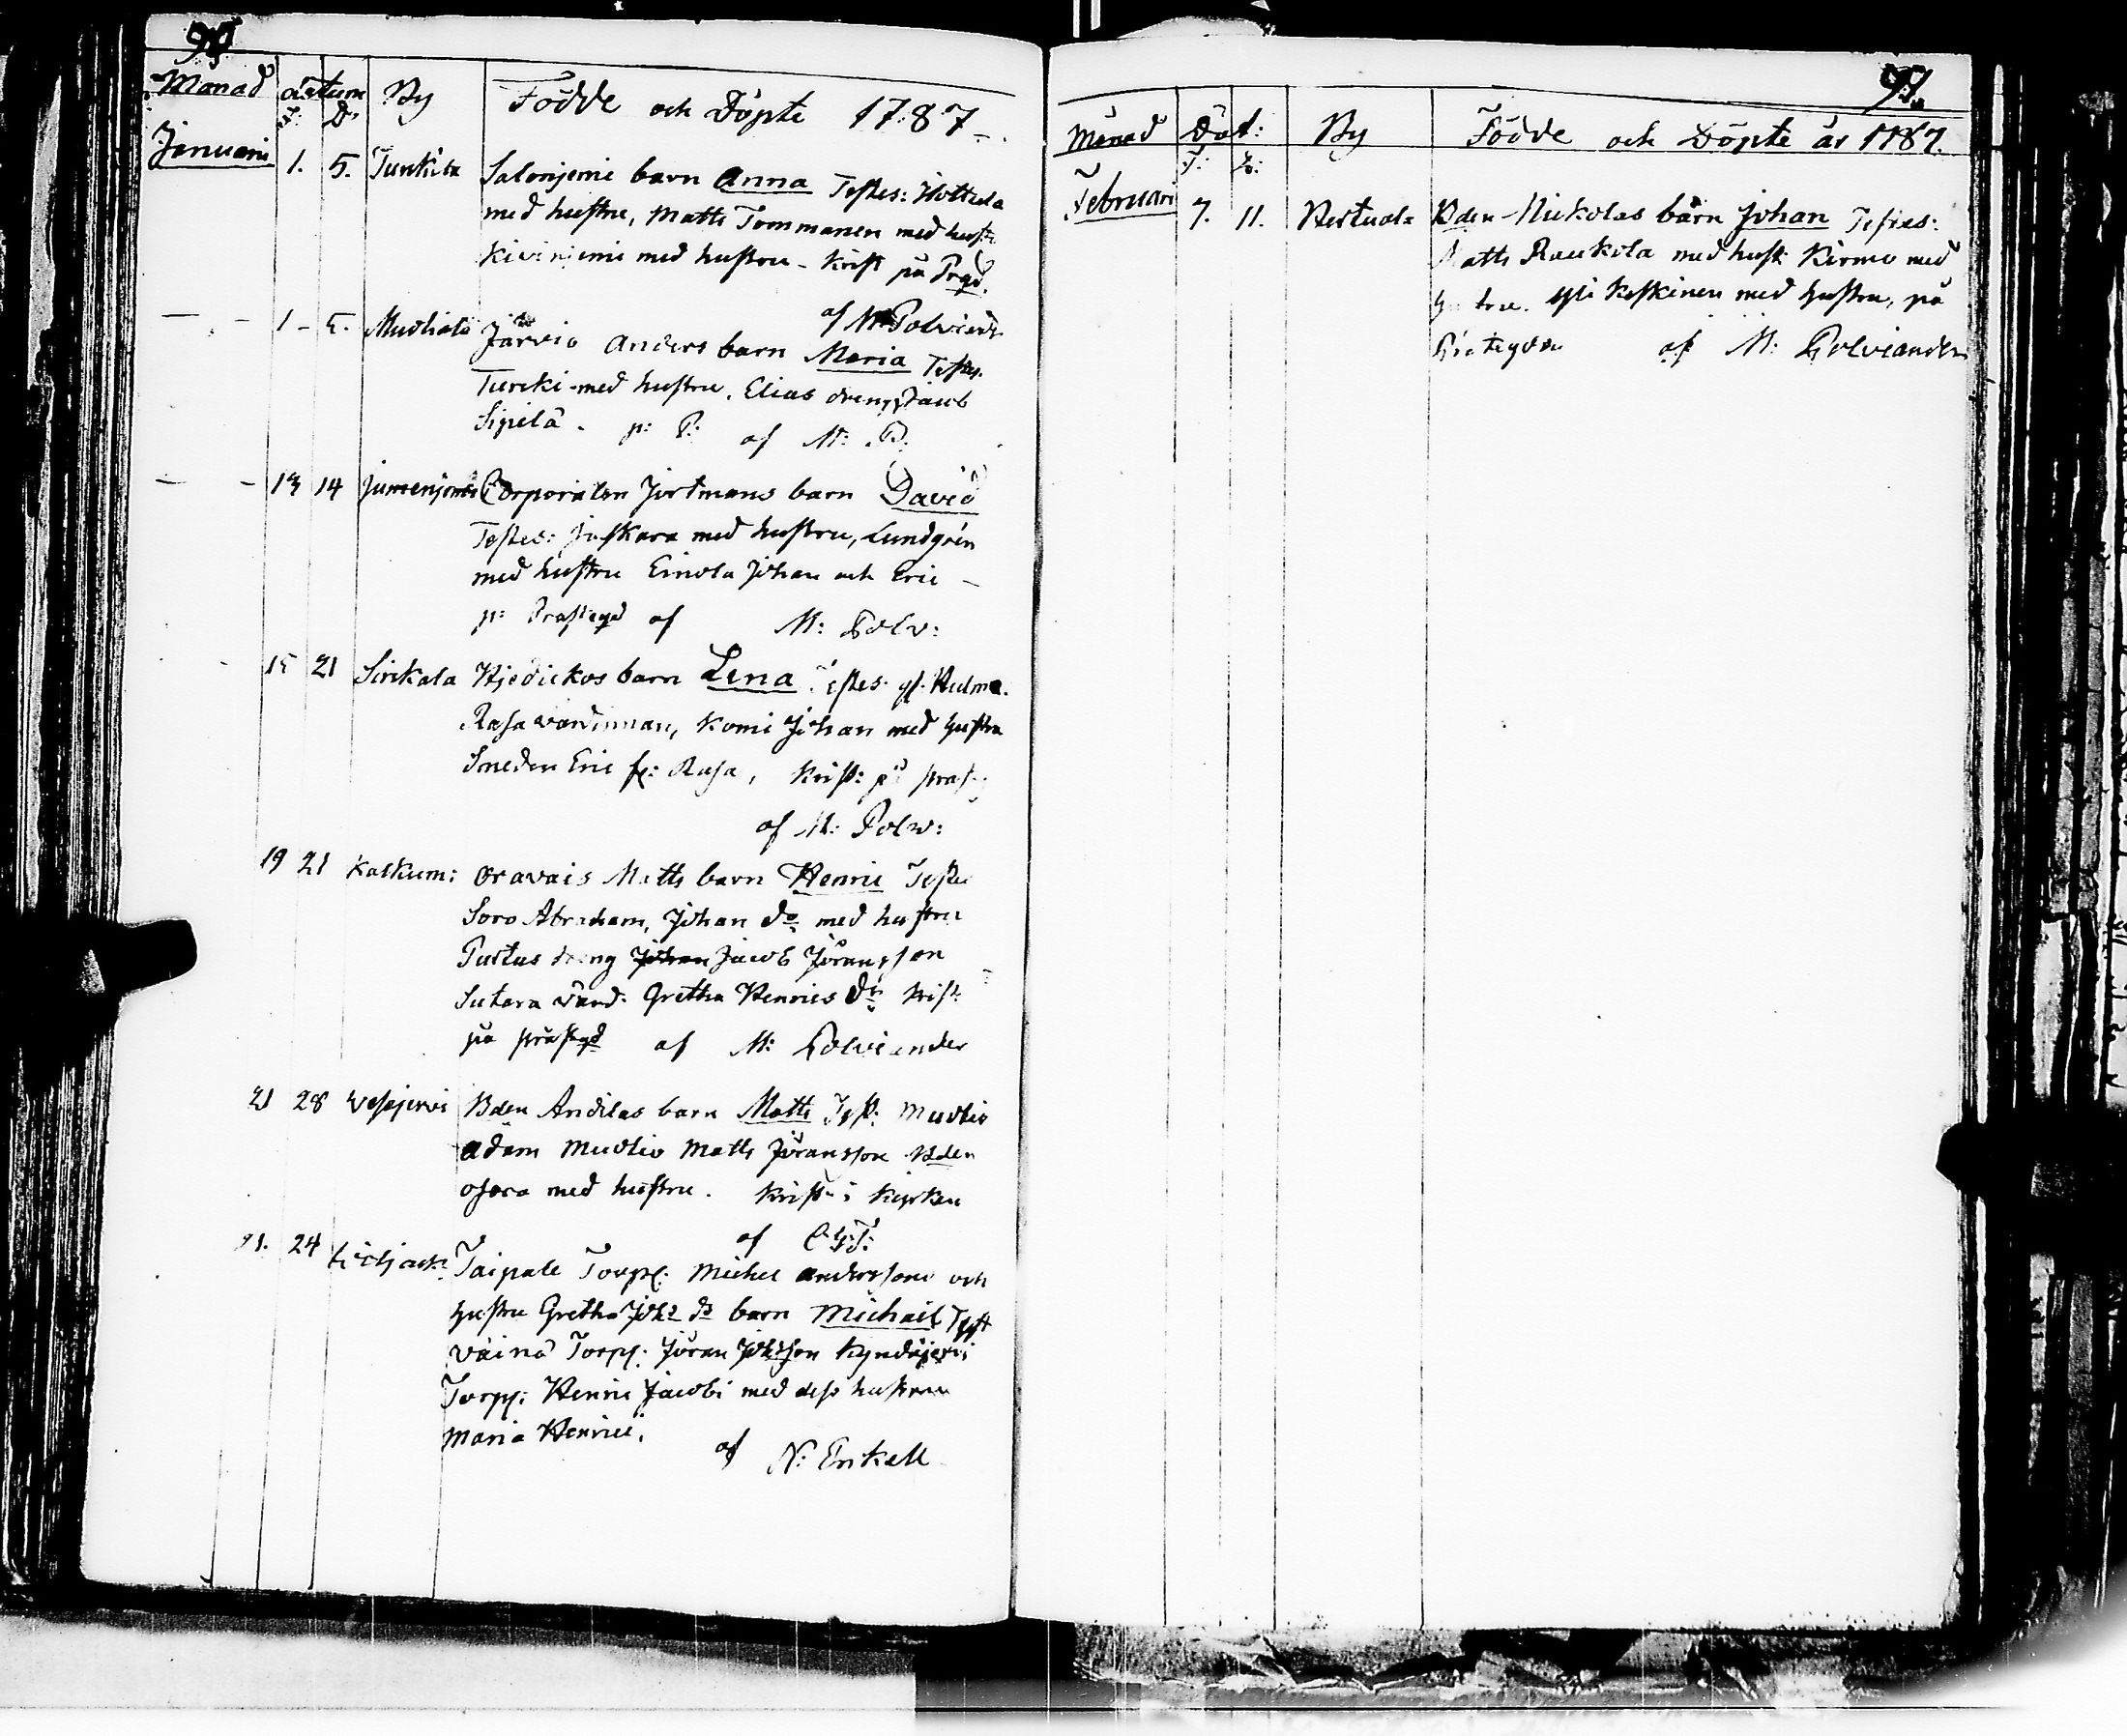 Månad datum By Födde och Döpte 1787
F: D:
Januari 1. 5. Junkila Salonjemi barn Anna Testes: Hottula
med hustru, Matts Tommanen med hustr
Kivinjemi med hustru - krist på Prgd.
af M: Polviander
— — 1 - 5. Muolialá Järvio Anders barn Maria Testes
Turcki med hustru, Elias dreng Jacob
Sipilä. p: P: af M: P:
— — 13 14 jumenjemi Corporalen Jortmans barn David
Testes: juskara med hustru, Lundgrén
med hustru Einola Johan och Eric —
p: Prästegd af M: Polv:
15 21 Sirikala Hjedickos barn Lena Testes. gf. Hulme.
Rasa wärdinnan, Komi Johan med hustru
Smeden Eric fr: Rasa, krist: på präst
af M: Polw:
19 21 Kalkum: Oravais Matts barn Henric Testes
Soro Abraham, Johan do med hustru
Purtus dreng Jacob Jöransson
Sutara värd: Gretha Henrics dr krist:
på prästgd af M: Polviander
21 28 Wesejervi Bden Andilas barn Matts Test: Muolio
Adam Muolio Matts Jöransson Bden
Ojara med hustru. krist: i Kyrkan
af C:G:T:
21. 24 Taipale Torp: Michel Andersson och
hustru Gretha Johs dr barn Michail Test
Väinö Torp: Jöran Johsson Kyndäjervi
Torp: Henric Jacobi med dess hustru
Maria Henrici. af N: Enkell
97.
Månad Dat: By Födde och Döpte år 1787.
F: D:
Februari 7. 11. Hertuala Bden Nickolas barn Johan Testes:
Matts Raukola med hust: Kirmo med
hustru. Keskinen med hustru, på
Prästegden af M: Polviander